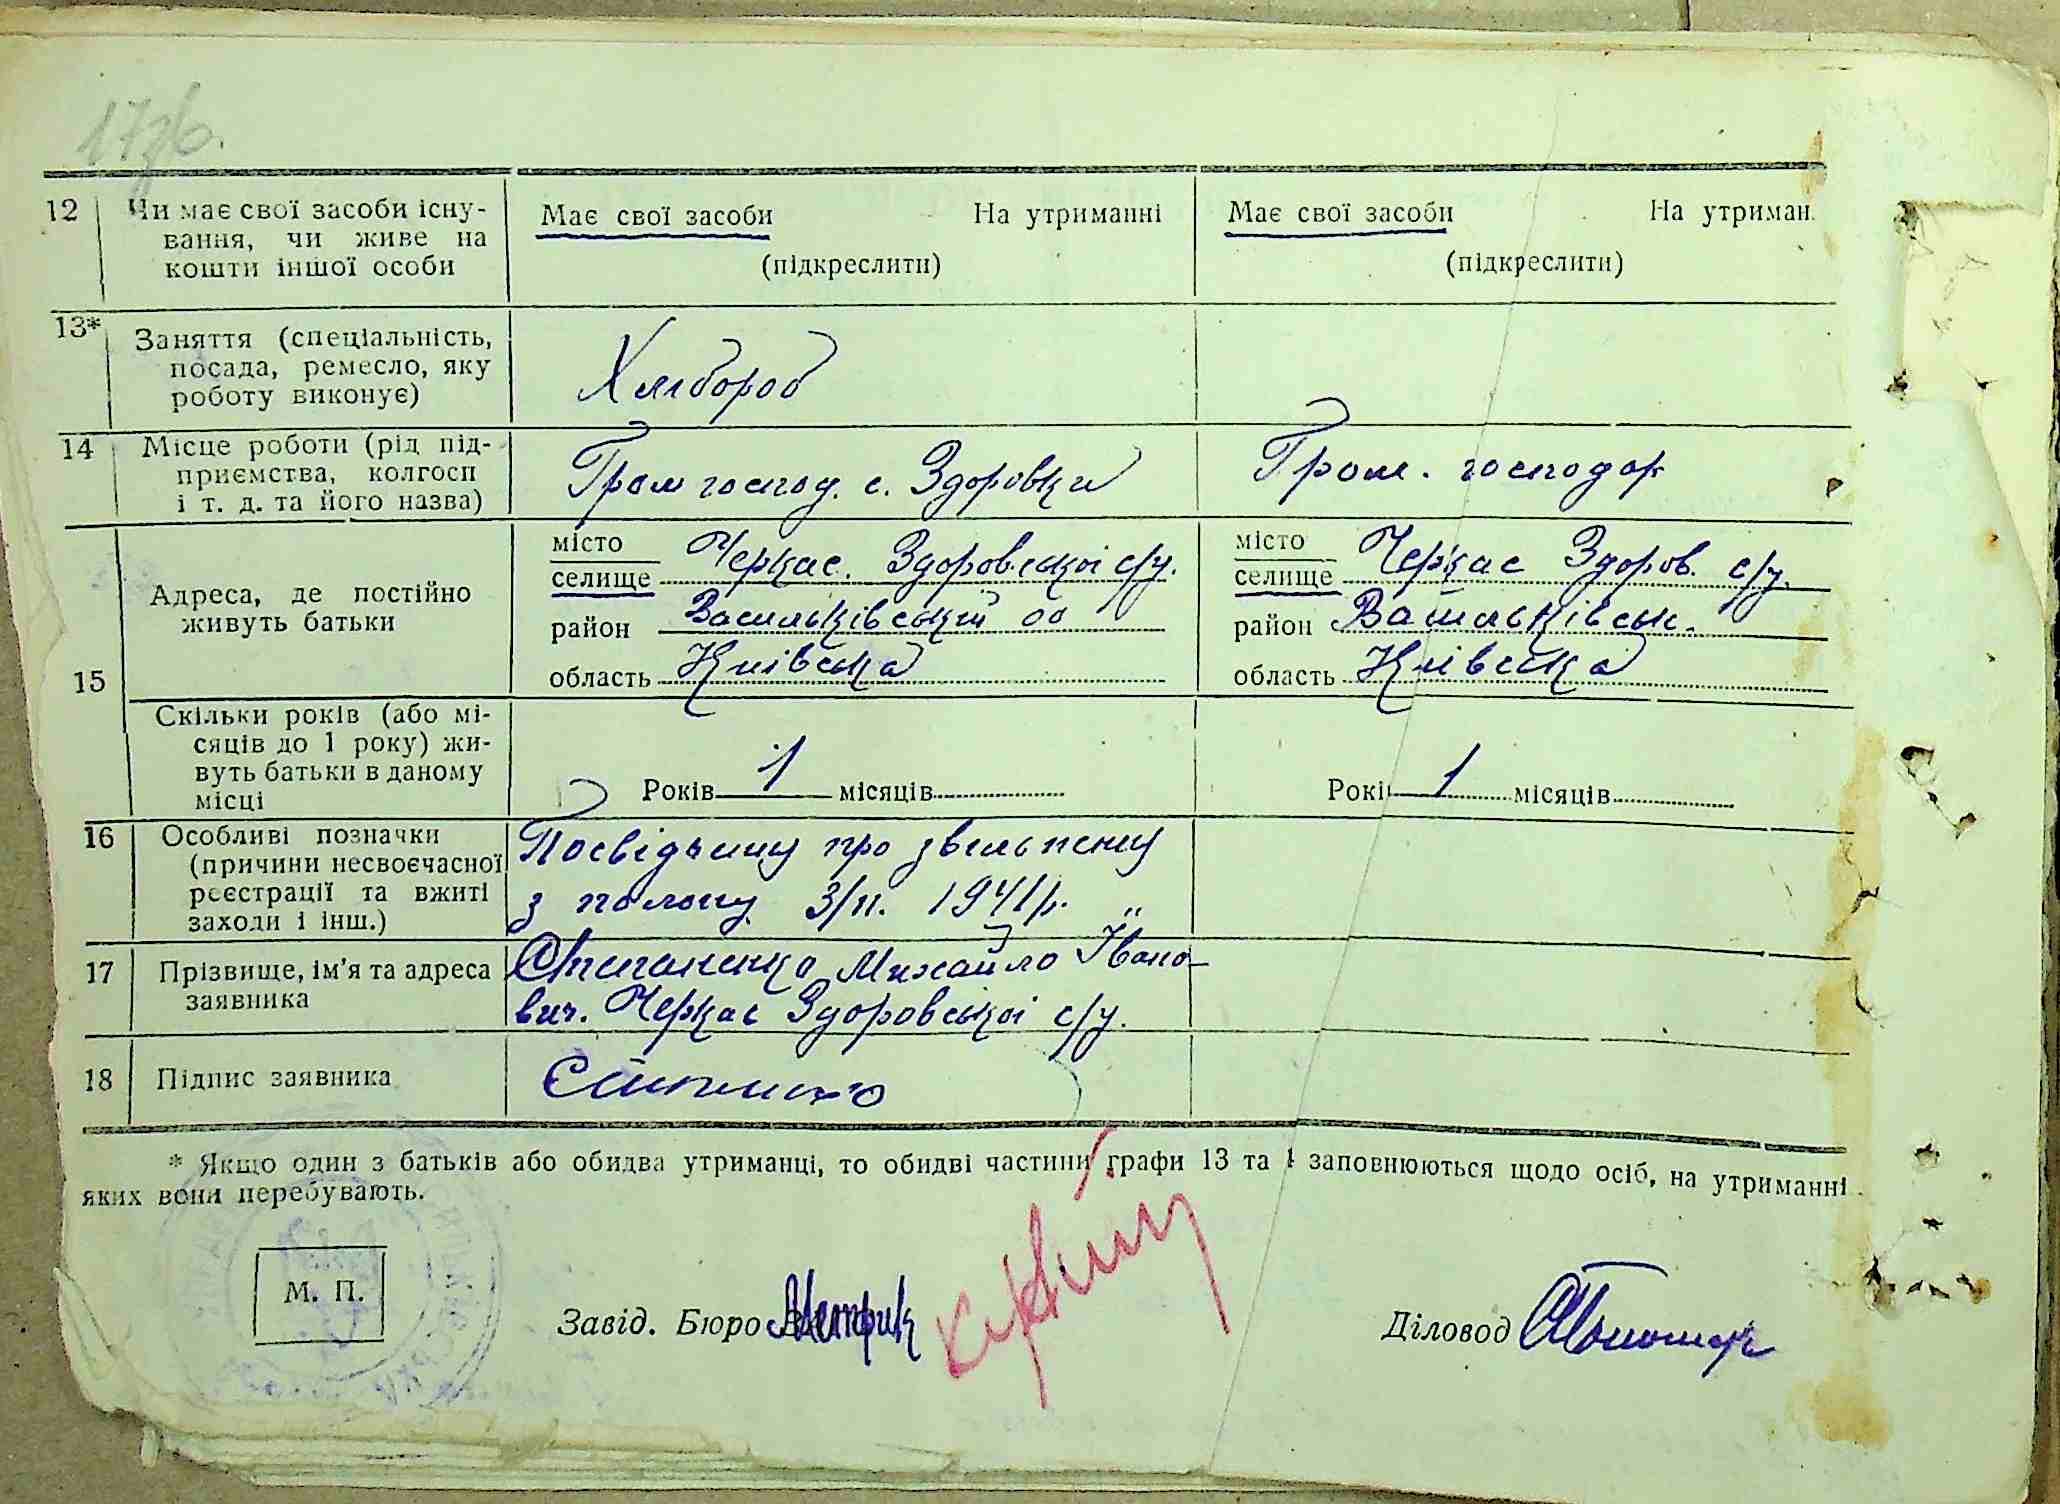 17зв.
12 Чи має свої засоби існу-
вання, чи живе на
кошти іншої особи
Має свої засоби На утриманні
(підкреслити)
Має свої засоби На утриман
(підкреслити)
13* Заняття (спеціальність,
посада, ремесло, яку
роботу виконує)
Хлібороб
14 Місце роботи (рід під-
приємства, колгосп
і т. д. та його назва)
Гром господ. с. Здоровки
Гром. господар
15
Адреса, де постійно
живуть батьки
місто
селище Черкас. Здоровської с/у.
район Васильківський
область Київська
місто
селище Черкас Здоров. с/у.
район Васильківськ.
область Київська
Скільки років (або мі-
сяців до 1 року) жи-
вуть батьки в даному
місці
Років 1 місяців
Рокі 1 місяців
16 Особливі позначки
(причини несвоєчасної
реєстрації та вжиті
заходи і інш.)
Посвідчину про звільнену
з полону 3/ІІ. 1941р.
17 Прізвище, ім'я та адреса
заявника
Степаненко Михайло Івано-
вич. Черкас Здоровської с/у.
18 Підпис заявника
* Якщо один з батьків або обидва утриманці, то обидві частини графи 13 та 1 заповнюються щодо осіб, на утриманні
яких вони перебувають.
М. П.
Завід. Бюро
Діловод